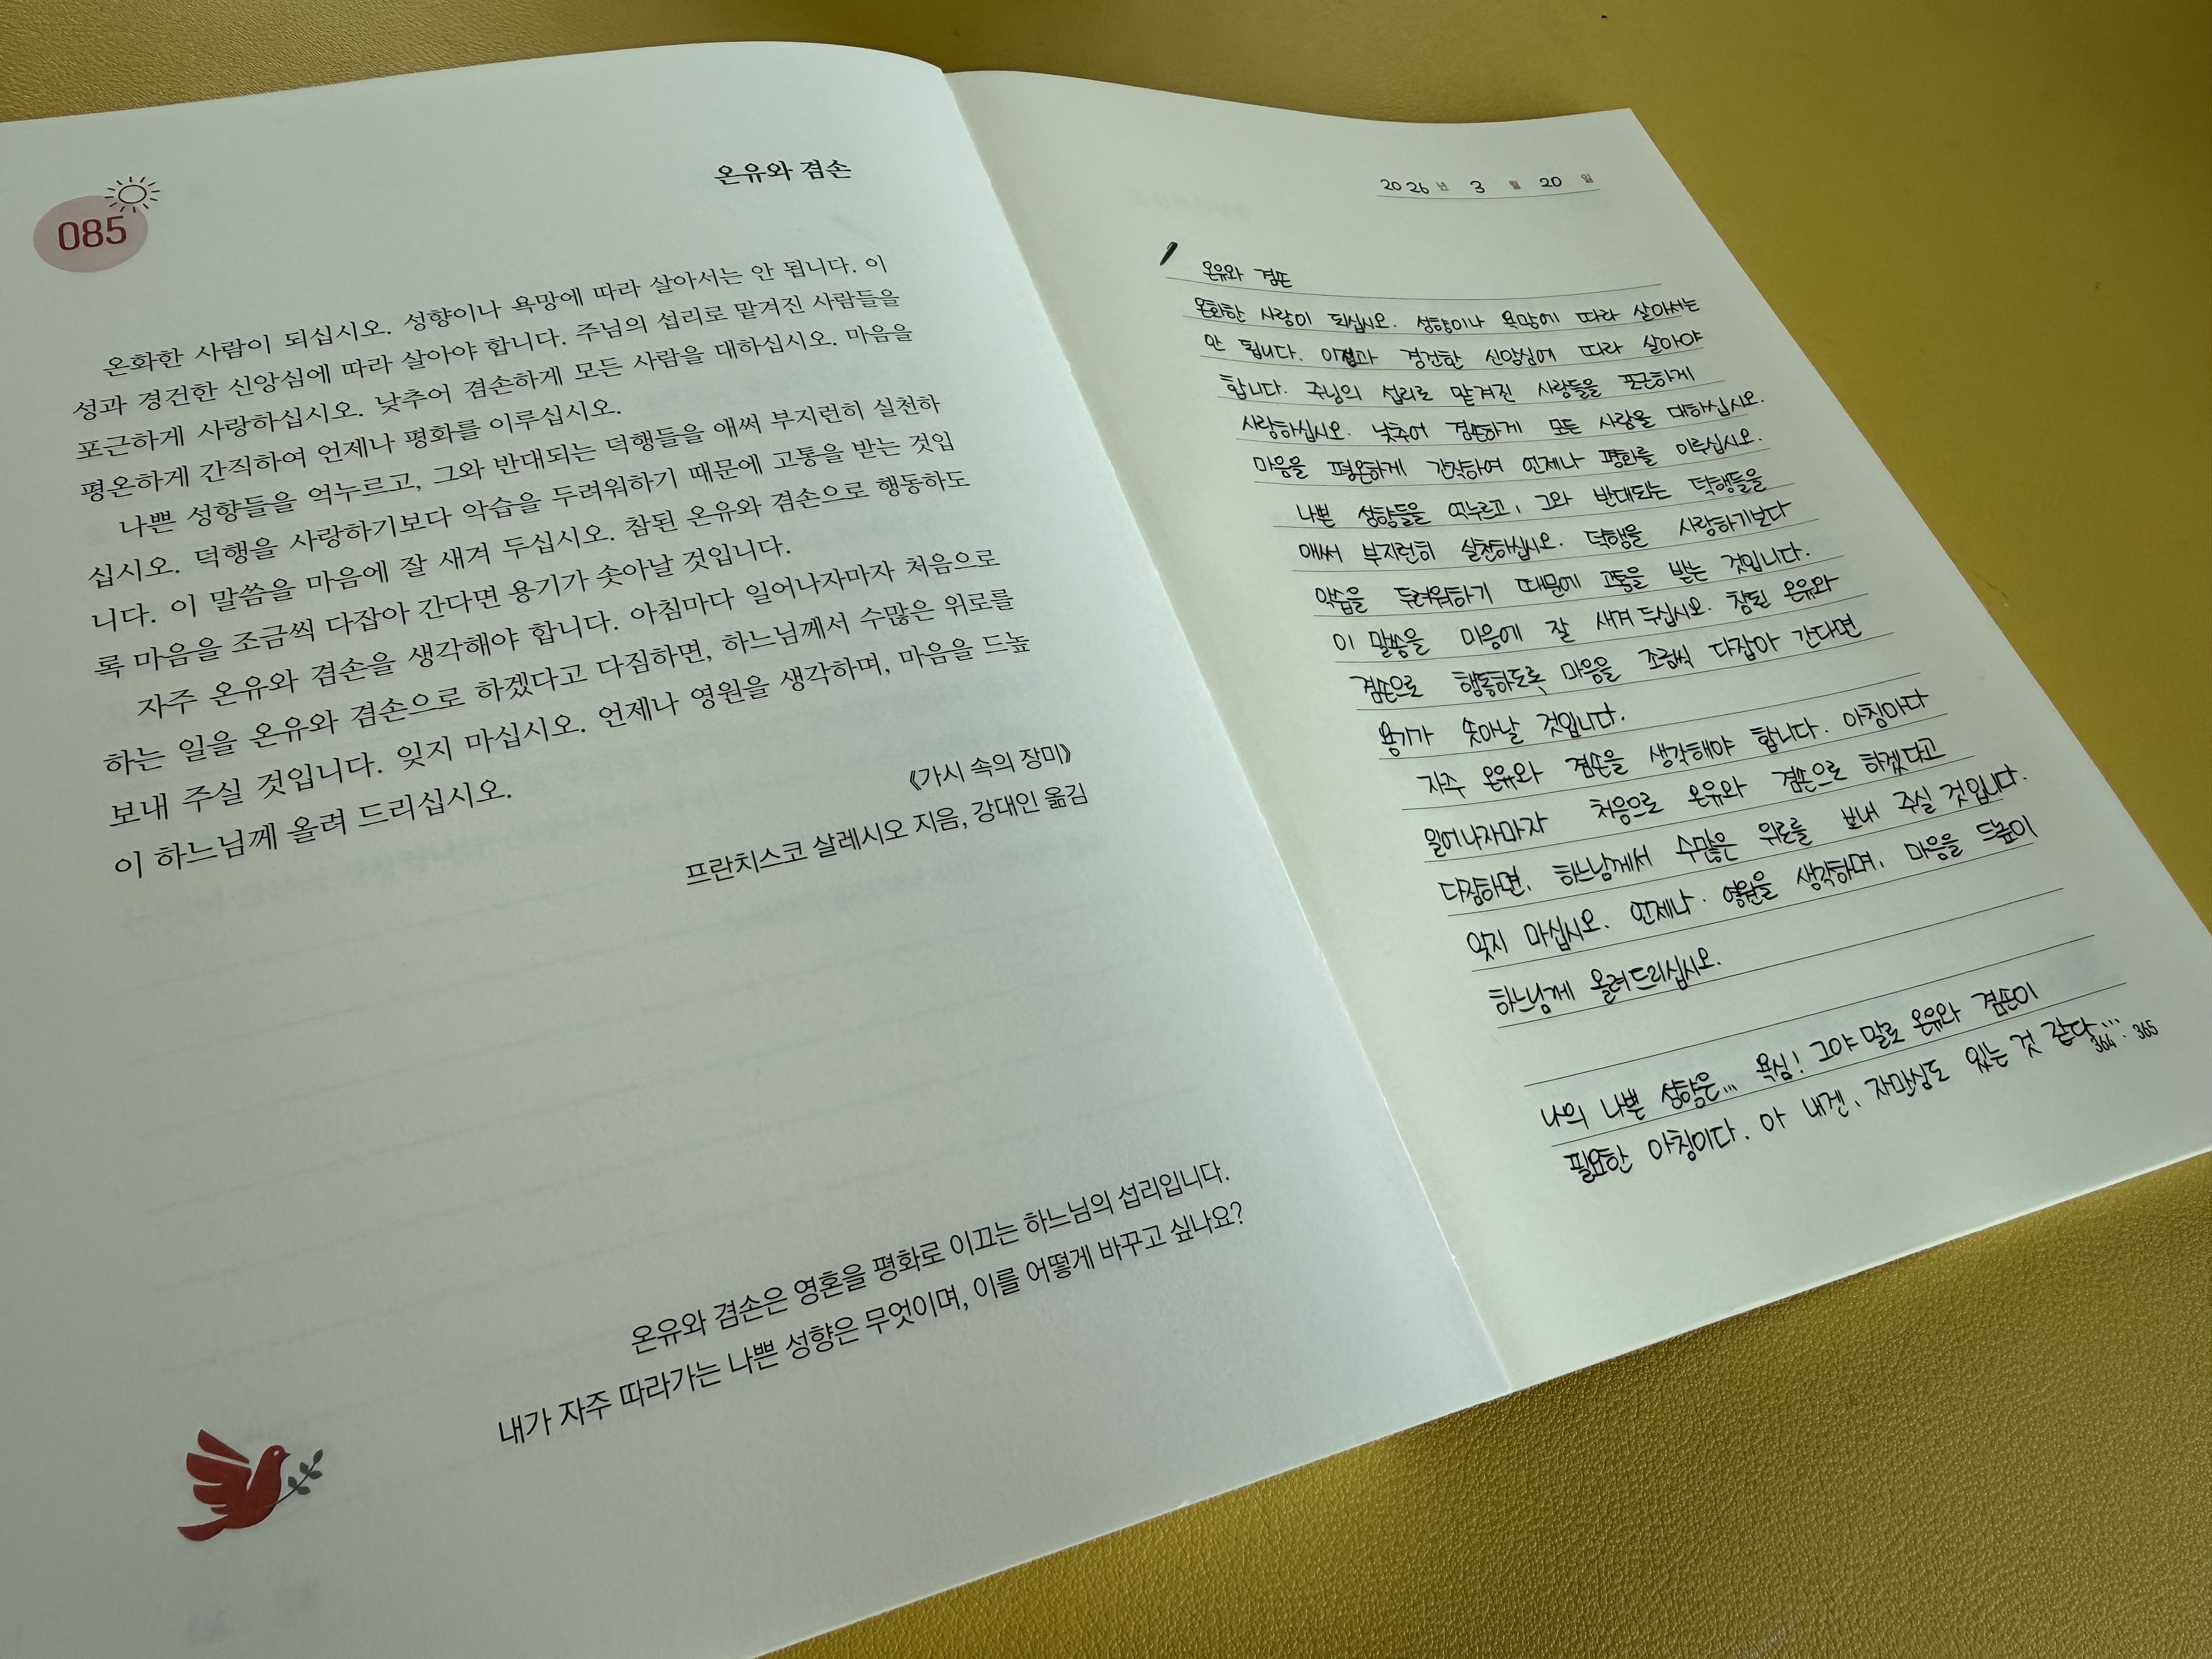 085
온유와 겸손
온화한 사람이 되십시오. 성향이나 욕망에 따라 살아서는 안 됩니다. 이
성과 경건한 신앙심에 따라 살아야 합니다. 주님의 섭리로 맡겨진 사람들을
포근하게 사랑하십시오. 낮추어 겸손하게 모든 사람을 대하십시오. 마음을
평온하게 간직하여 언제나 평화를 이루십시오.
나쁜 성향들을 억누르고, 그와 반대되는 덕행들을 애써 부지런히 실천하
십시오. 덕행을 사랑하기보다 악습을 두려워하기 때문에 고통을 받는 것입
니다. 이 말씀을 마음에 잘 새겨 두십시오. 참된 온유와 겸손으로 행동하도
록 마음을 조금씩 다잡아 간다면 용기가 솟아날 것입니다.
자주 온유와 겸손을 생각해야 합니다. 아침마다 일어나자마자 처음으로
하는 일을 온유와 겸손으로 하겠다고 다짐하면, 하느님께서 수많은 위로를
보내 주실 것입니다. 잊지 마십시오. 언제나 영원을 생각하며, 마음을 드높
이 하느님께 올려 드리십시오.
《가시 속의 장미》
프란치스코 살레시오 지음, 강대인 옮김
온유와 겸손은 영혼을 평화로 이끄는 하느님의 섭리입니다.
내가 자주 따라가는 나쁜 성향은 무엇이며, 이를 어떻게 바꾸고 싶나요?
2026년 3월 20일
온유와 겸손
온화한 사람이 되십시오. 성향이나 욕망에 따라 살아서는
안 됩니다. 이성과 경건한 신앙심에 따라 살아야
합니다. 주님의 섭리로 맡겨진 사람들을 포근하게
사랑하십시오. 낮추어 겸손하게 모든 사람을 대하십시오.
마음을 평온하게 간직하여 언제나 평화를 이루십시오.
나쁜 성향들을 억누르고, 그와 반대되는 덕행들을
애써 부지런히 실천하십시오. 덕행을 사랑하기보다
악습을 두려워하기 때문에 고통을 받는 것입니다.
이 말씀을 마음에 잘 새겨 두십시오. 참된 온유와
겸손으로 행동하도록 마음을 조금씩 다잡아 간다면
용기가 솟아날 것입니다.
자주 온유와 겸손을 생각해야 합니다. 아침마다
일어나자마자 처음으로 온유와 겸손으로 하겠다고
다짐하면, 하느님께서 수많은 위로를 보내 주실 것입니다.
잊지 마십시오. 언제나 영원을 생각하며, 마음을 드높이
하느님께 올려드리십시오.
나의 나쁜 성향은... 욕심! 그야말로 온유와 겸손이
필요한 아침이다. 아 내겐, 자만심도 있는 것 같다...
364 · 365